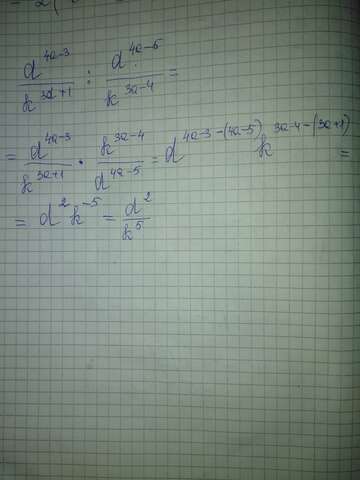 d^{4a-3}/k^{3a+1} : d^{4a-5}/k^{3a-4} =
= d^{4a-3}/k^{3a+1} · k^{3a-4}/d^{4a-5} = d^{4a-3-(4a-5)} k^{3a-4-(3a+1)} =
= d^2 k^{-5} = d^2/k^5